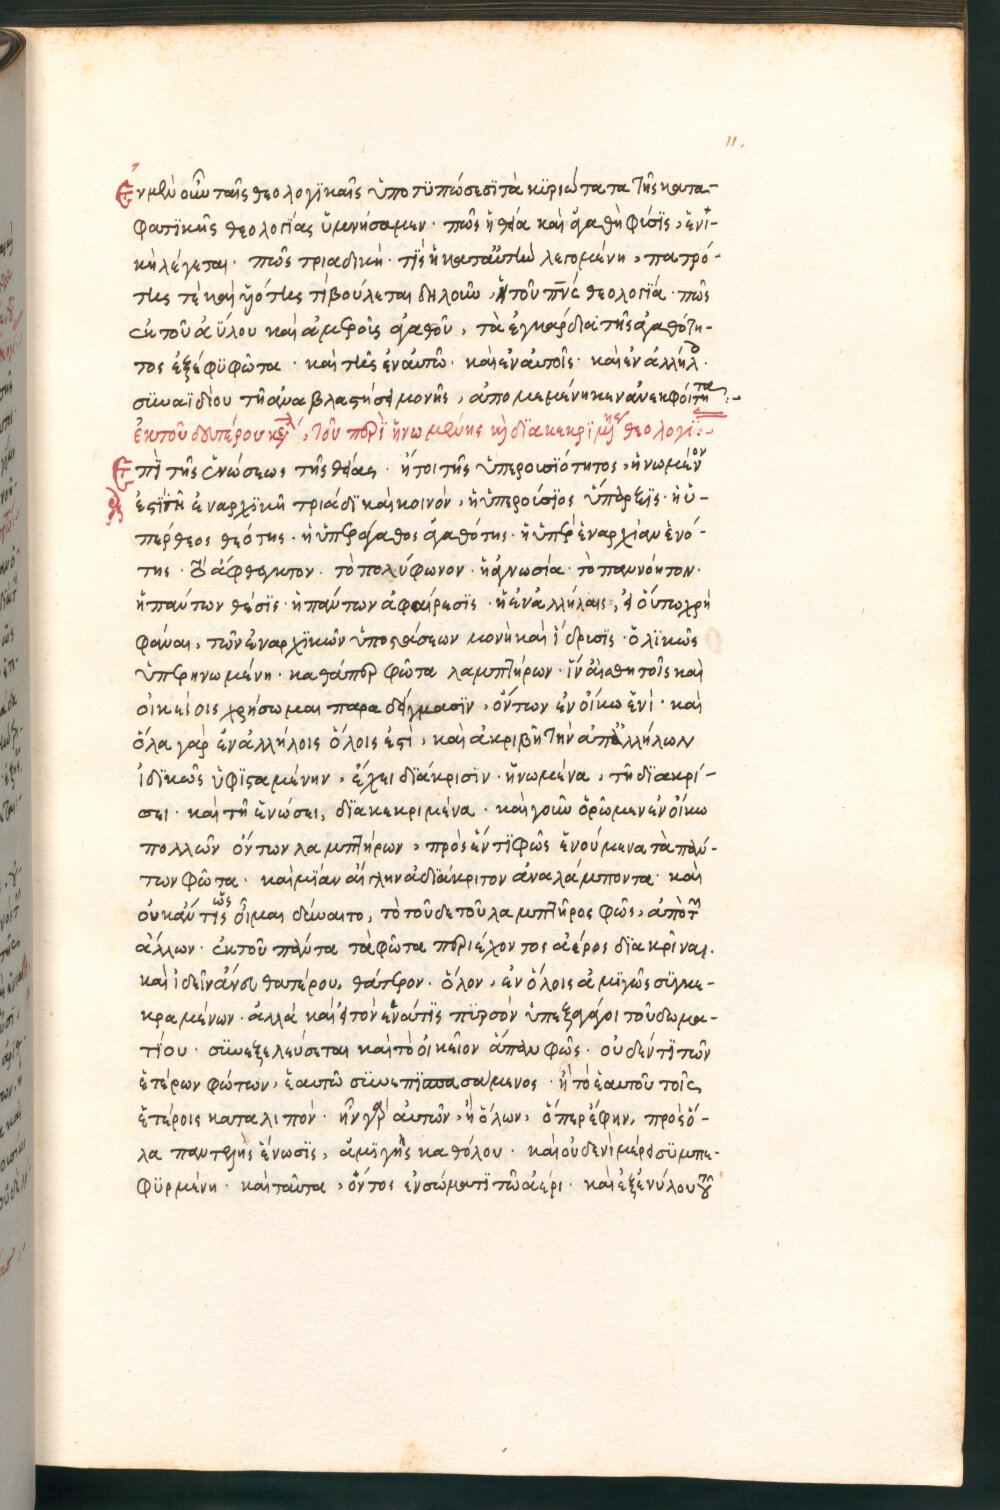 11.
Ἐν μὲν οὖν ταῖς θεολογϊκαῖς ὑποτϋπώσεσϊ τὰ κϋριώτατα τῆς κατα-
φατϊκῆς θεολογίας ὑμνήσαμεν · πῶς ἡ θεία καὶ ἀγαθὴ φύσϊς, ἑνϊ-
κὴ λέγεται · πῶς τριαδική · τίς ἡ κατ αὐτὴν λεγομένη, πατρό-
της τὲ καὶ υἱότης τί βούλεται δηλοῦν, ἡ τοῦ πνς θεολογία · πῶς
ἐκ τοῦ ἀΰλου καὶ ἀμεροῦς ἀγαθοῦ, τὰ ἐγκάρδια τῆς ἀγαθότη-
τος ἐξέφϋ φῶτα · καὶ τῆς ἐν αὐτῶ · καὶ ἐν αὑτοῖς · καὶ ἐν ἀλλήλ ·
συναϊδίου τῆ ἀναβλαστήσει μονῆς, ἀπομεμένηκεν ἀνεκφοίτητα :-
ἐκ τοῦ δευτέρου κεφ, τοῦ περὶ ἡνωμένης κὴ διακεκριμένης θεολογί :-
Ἐπὶ τῆς ἑνώσεως τῆς θείας · ἤτοι τῆς ὑπερουσιότητος, ἡνωμένον
ἐστὶ τῆ ἑναρχϊκῆ τριάδϊ καὶ κοινὸν, ἡ ὑπερούσϊος ὕπαρξϊς · ἡ ὑ-
πέρθεος θεότης · ἡ ὑπεράγαθος ἀγαθότης · ἡ ὑπὲρ ἑναρχίαν ἑνό-
της · τὸ ἄφθεγκτον · τὸ πολύφωνον · ἡ ἀγνωσία · τὸ παννόητον ·
ἡ πάντων θέσϊς · ἡ πάντων ἀφαίρεσϊς · ἡ ἐν ἀλλήλαις, εἰ οὕτω χρὴ
φάναι, τῶν ἑναρχϊκῶν ὑποστάσεων μονὴ καὶ ἵδρυσϊς · ὁλϊκῶς
ὑπερηνωμένη · καθάπερ φῶτα λαμπτήρων · ἵν αἰσθητοῖς καὶ
οἰκείοις χρήσωμαι παραδείγμασϊν, ὄντων ἐν οἴκω ἑνὶ · καὶ
ὅλα γὰρ ἐν ἀλλήλοις ὅλοις ἐστὶ, καὶ ἀκριβῆ τὴν ἀπ ἀλλήλων
ἰδϊκῶς ὑφϊσταμένην, ἔχει διάκρισϊν · ἡνωμένα, τῆ διακρί-
σει · καὶ τῆ ἑνώσει, διακεκριμένα · καὶ γοῦν ὁρῶμεν ἐν οἴκω
πολλῶν ὄντων λαμπτήρων, πρὸς ἕν τϊ φῶς ἑνούμενα τὰ πάν-
των φῶτα · καὶ μίαν αἴγλην ἀδιάκριτον ἀναλάμποντα · καὶ
οὐκ ἄν τις ὡς οἶμαι δύναιτο, τὸ τοῦδε τοῦ λαμπτῆρος φῶς, ἀπὸ τῶν
ἄλλων · ἐκ τοῦ πάντα τὰ φῶτα περιέχοντος ἀέρος διακρῖναι ·
καὶ ἰδεῖν ἄνευ θατέρου, θάτερον · ὅλον, ἐν ὅλοις ἀμϊγῶς σϋγκε-
κραμένων · ἀλλὰ καὶ εἰ τὸν ἕνα τὶς πϋρσὸν ὑπεξαγάγοι τοῦ δωμα-
τίου · συνεξελεύσεται καὶ τὸ οἰκεῖον ἅπαν φῶς · οὐδέν τϊ τῶν
ἑτέρων φώτων, ἑαυτῶ σϋνεπϊσπασάμενος · ἢ τὸ ἑαυτοῦ τοῖς
ἑτέροις καταλιπόν · ἦν γὰρ αὐτῶν, ἡ ὅλων, ὅπερ ἔφην, πρὸς ὅ-
λα παντελὴς ἕνωσϊς, ἀμϊγὴς καθόλου · καὶ οὐδενὶ μέρει σϋμπε-
φϋρμένη · καὶ ταῦτα, ὄντος ἐν σώματϊ τῶ ἀέρι · καὶ ἐξ ἐνύλου τοῦ